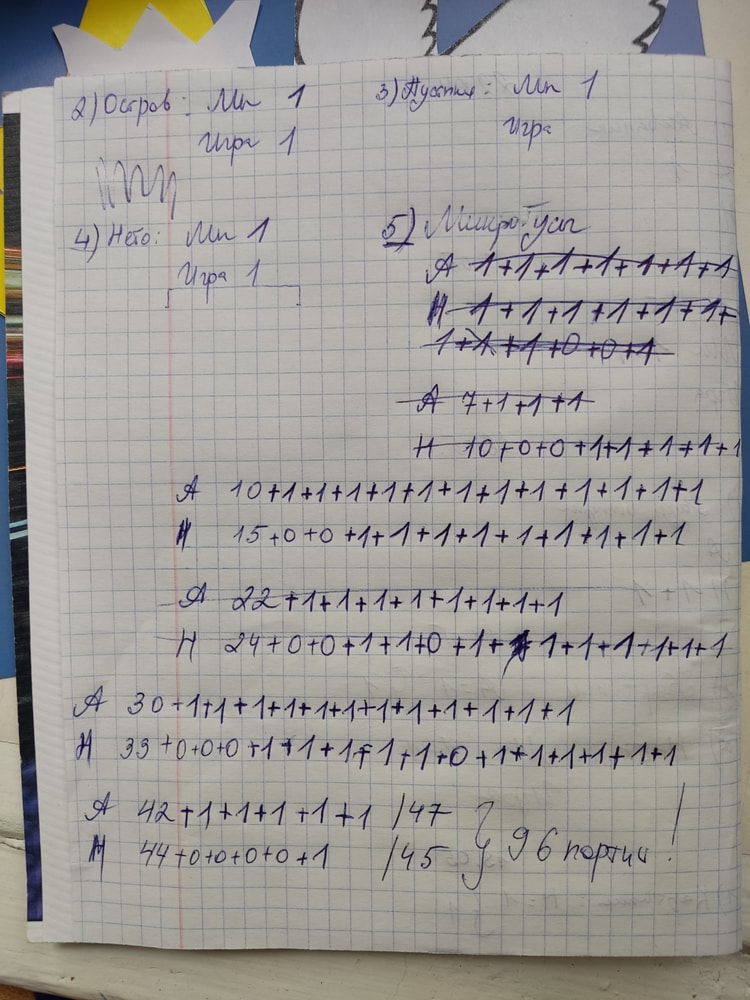 2) Остров: Мп 1 3) Пустыня: Мп 1
Игра 1 Игра
4) Нето: Мп 1 5) Микро Туси
Игра 1
А 1+1+1+1+1+1+1
Н 1+1+1+1+1+1+
1+1+1+0+0+1
А 7+1+1+1
Н 10+0+0+1+1+1+1+1
А 10+1+1+1+1+1+1+1+1+1+1+1+1
Н 15+0+0+1+1+1+1+1+1+1+1+1
А 22+1+1+1+1+1+1+1+1
Н 24+0+0+1+1+0+1+1+1+1+1+1+1
А 30+1+1+1+1+1+1+1+1+1+1+1+1
Н 33+0+0+0+1+1+1+1+1+0+1+1+1+1+1+1
А 42+1+1+1+1+1 /47
Н 44+0+0+0+0+1 /45 } 96 партий!